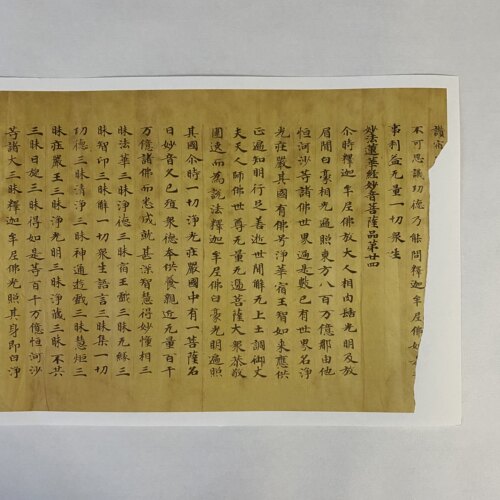 讚
不可思議功德乃能問釋迦牟尼佛如
事利益无量一切衆生
妙法蓮華經妙音菩薩品第廿四
尒時釋迦牟尼佛放大人相肉髻光明及放
眉間白豪相光遍照東方八百万億那由他
恒河沙等諸佛世界過是數已有世界名淨
光莊嚴其國有佛号淨華宿王智如來應供
正遍知明行足善逝世間解无上士調御丈
夫天人師佛世尊无量无邊菩薩大衆恭敬
圍遶而為說法釋迦牟尼佛白豪光明遍照
其國尒時一切淨光莊嚴國中有一菩薩名
曰妙音久已殖衆德本供養親近无量百千
万億諸佛而悉成就甚深智慧得妙幢相三
昧法華三昧淨德三昧宿王戲三昧无緣三
昧智印三昧解一切衆生語言三昧集一切
功德三昧清淨三昧神通遊戲三昧慧炬三
昧莊嚴王三昧淨光明三昧淨藏三昧不共
三昧日旋三昧得如是等百千万億恒河沙
等諸大三昧釋迦牟尼佛光照其身即白淨